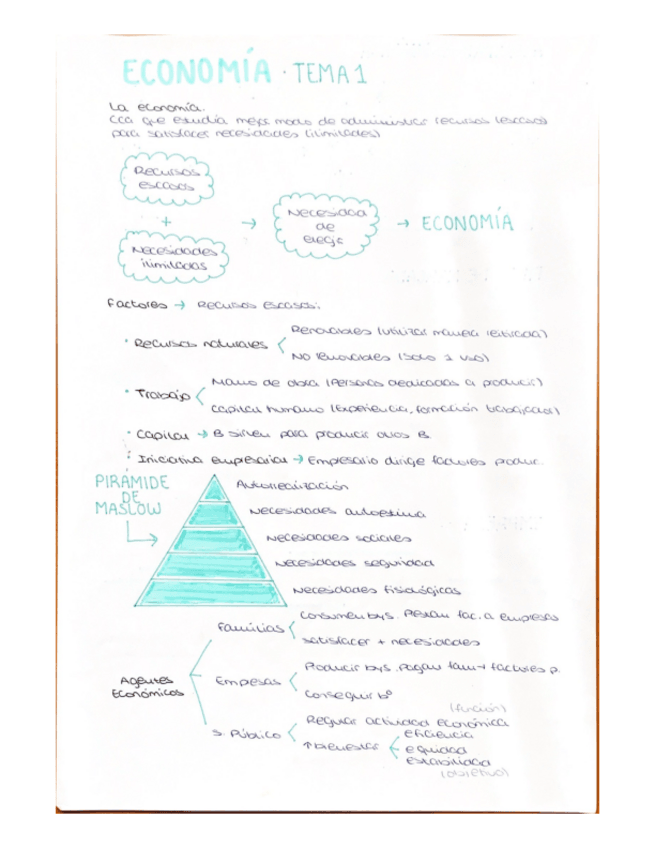 ECONOMÍA · TEMA 1
La economía.
Cca que estudia mejs modo de administrar recursos (escasos)
para satisfacer necesidades (ilimitades)
Recursos
escasos
+
Necesidades
ilimitadas
→ Necesidad
de
elegir
→ ECONOMÍA
Factores → Recursos escasos:
· Recursos naturales
Renovables (utilizar manera
No renovables (solo 1 uso)
· Trabajo
Mano de obra (Personas dedicadas a producir)
capital humano (Experiencia, formación trabajador)
· Capital → B sirven para producir otros B.
· Iniciativa empresarial → Empresario dirige factores produc.
PIRÁMIDE
DE
MASLOW
Autorrealización
Necesidades autoestima
Necesidades sociales
Necesidades seguridad
Necesidades fisiológicas
Agentes
Económicos
Familias
Consumen bys. Prestan fac. a empresas
satisfacer + necesidades
Empresas
Producir bys. Pagan fam → factores p.
Conseguir bº
S. Público
(función)
Regular actividad económica
↑ bienestar
eficiencia
equidad
estabilidad
(objetivo)